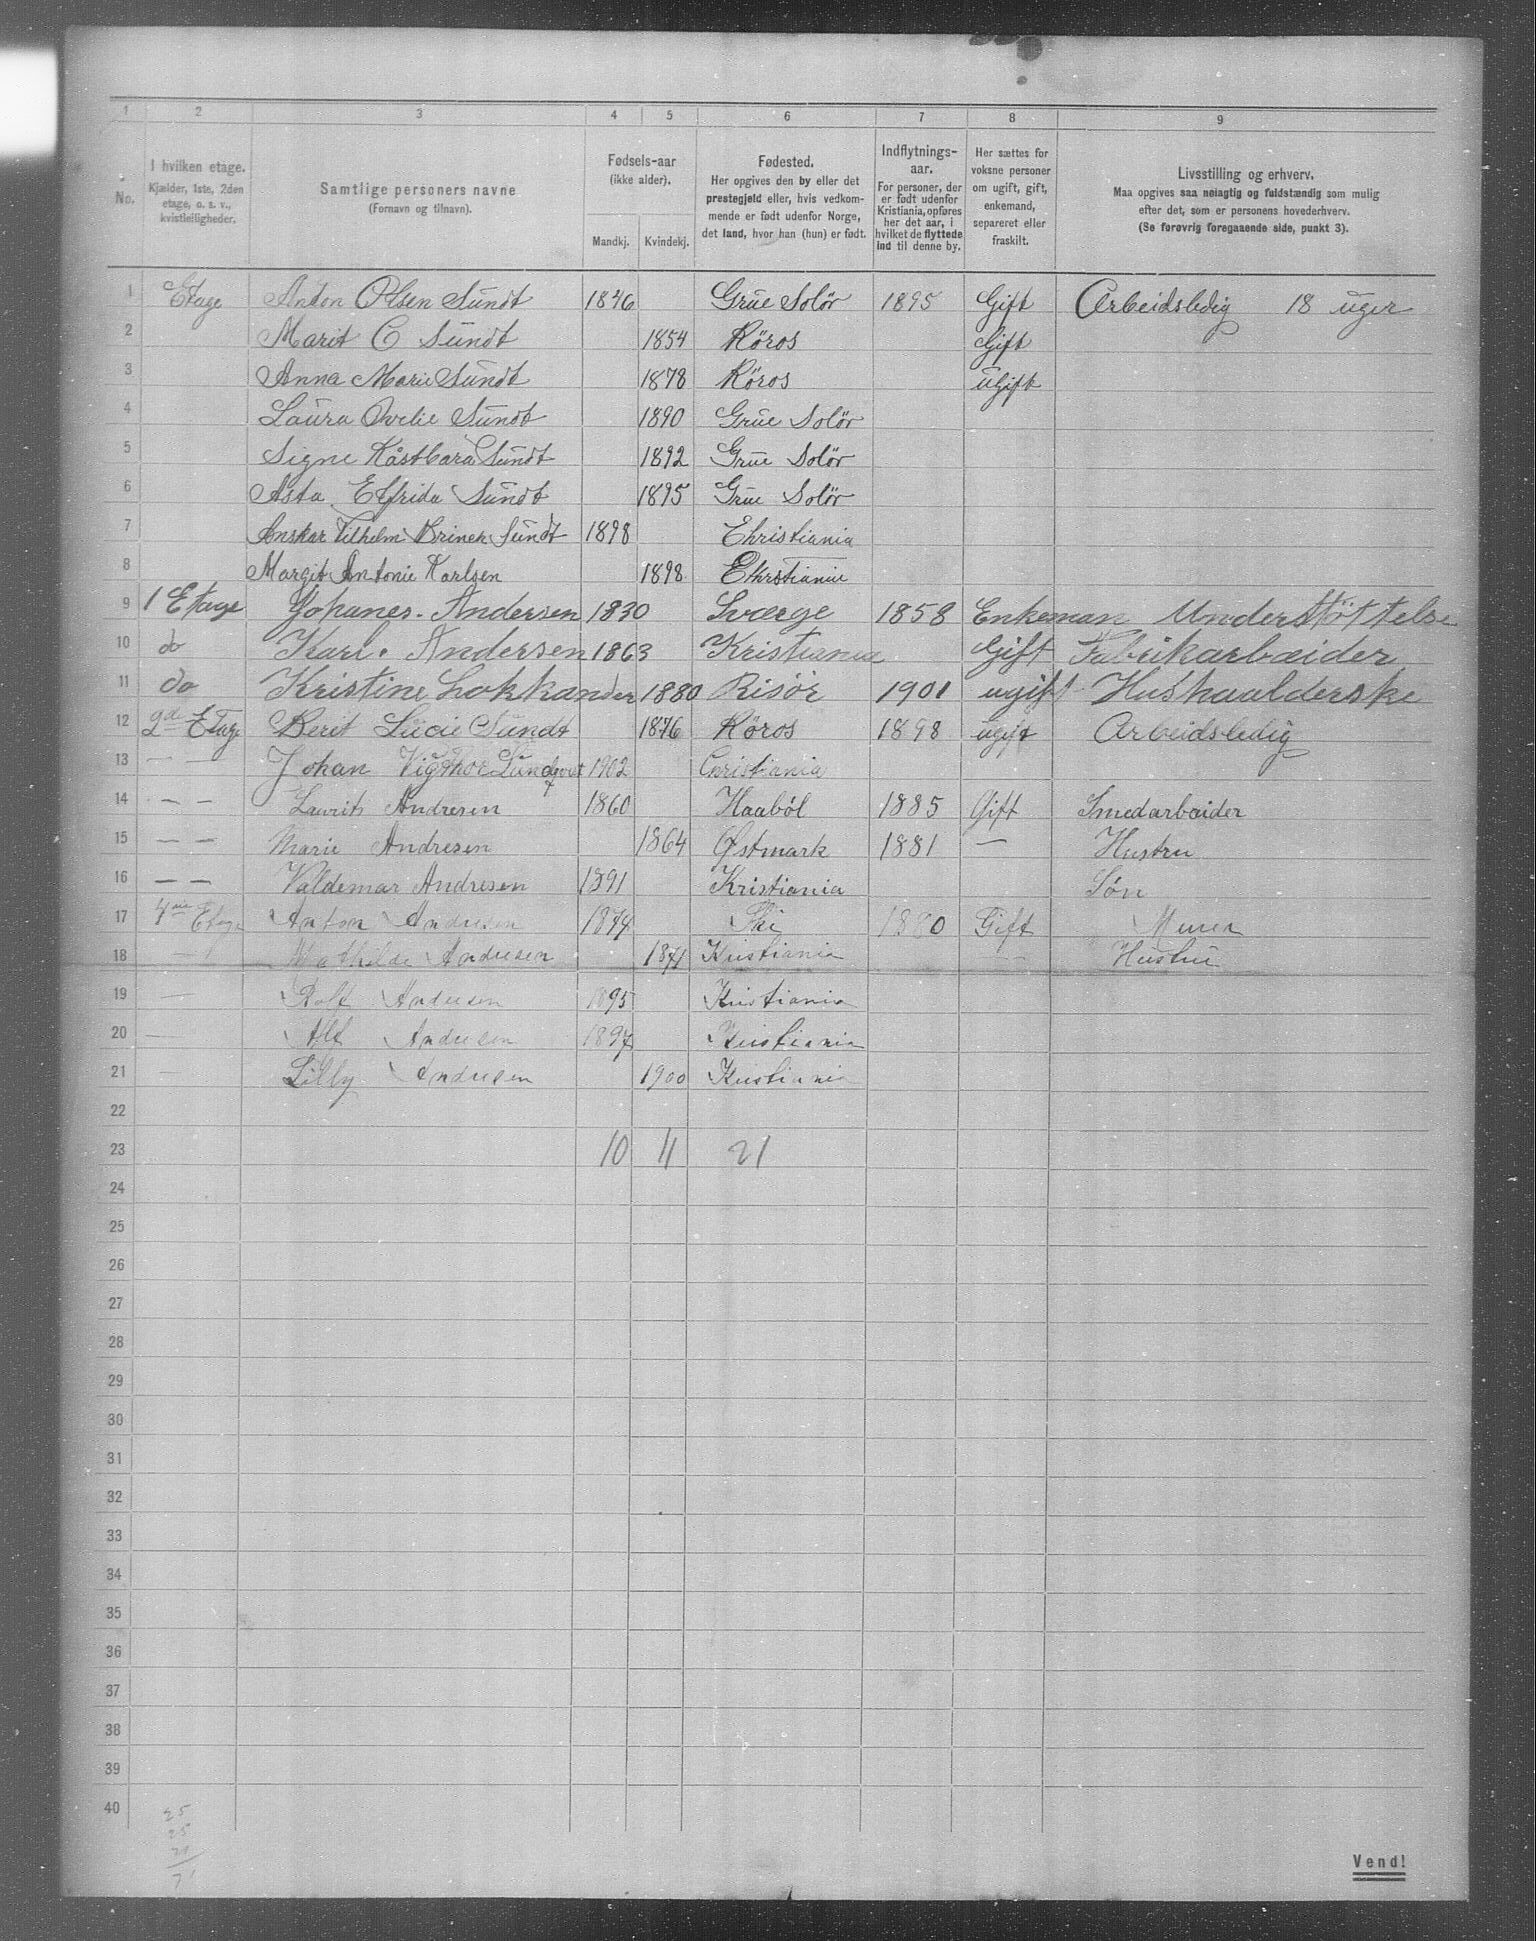 1 2 3 4 5 6 7 8 9
No.
I hvilken etage.
Kjælder, 1ste, 2den
etage, o. s. v.,
kvistleiligheder.
Samtlige personers navne
(Fornavn og tilnavn).
Fødsels-aar
(ikke alder).
Mandkj. Kvindekj.
Fødested.
Her opgives den by eller det
prestegjeld eller, hvis vedkom-
mende er født udenfor Norge,
det land, hvor han (hun) er født.
Indflytnings-
aar.
For personer, der
er født udenfor
Kristiania, opføres
her det aar, i
hvilket de flyttede
ind til denne by.
Her sættes for
voksne personer
om ugift, gift,
enkemand,
separeret eller
fraskilt.
Livsstilling og erhverv.
Maa opgives saa nøiagtig og fuldstændig som mulig
efter det, som er personens hovederhverv.
(Se forøvrig foregaaende side, punkt 3).
1 Etage Anton Olsen Sundt 1846 Grue Solör 1895 Gift Arbeidsledig 18 uger
2 Marit C Sundt 1854 Røros Gift
3 Anna Marie Sundt 1878 Røros uGift
4 Laura Ovelie Sundt 1890 Grue Solør
5 Signe Sundt 1892 Grue Solør
6 Asta Elfrida Sundt 1895 Grue Solör
7 Anskar Vilhelm Sundt 1898 Christiania
8 Margit Antonie Karlsen 1898
9 1 Etage Johanes. Andersen 1830 Sværge 1858 Enkeman Understøttelse
10 do Karl. Andersen 1863 Kristiania Gift Fabrikarbeider
11 do Kristine Lokkander 1880 Risør 1901 ugift Hushaalderske
12 2d Etage Berit Lucie Sundt 1876 Røros 1898 ugift Arbeidsledig
13 — — Johan Vigthor Lundqvist 1902 Christiania
14 — — Laurits Andresen 1860 Haaböl 1885 Gift Smedarbeider
15 — — Marie Andresen 1864 Østmark 1881 — Hustru
16 — — Valdemar Andresen 1891 Kristiania Søn
17 Etage Anton Andresen 1874 Ski 1880 Gift Murer
18 — Mathilde Andresen 1871 Kristiania -- Hustru
19 — Rolf Andresen 1895 Kristiania
20 — Alf Andresen 1897 Kristiania
21 — Lilly Andresen 1900 Kristiani
22
23 10 11 21
24
25
26
27
28
29
30
31
32
33
34
35
36
37
38
39
40
25
25
21
71
Vend!